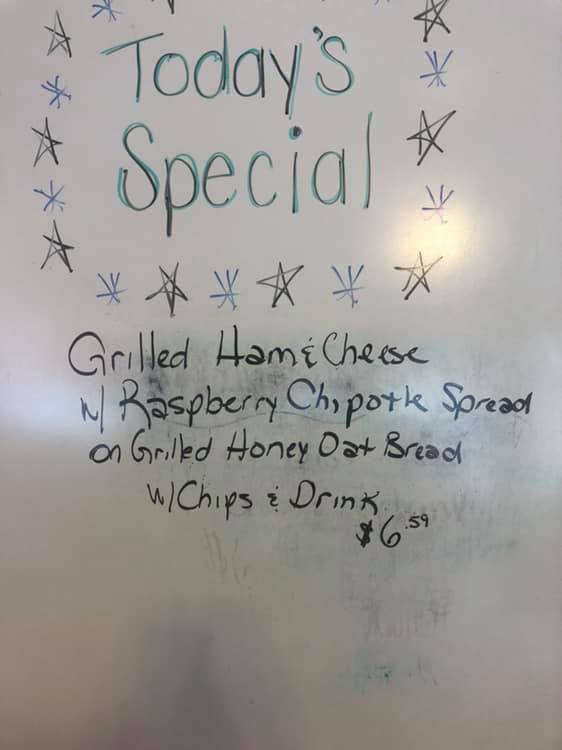 Today's
Special
Grilled Ham & Cheese
w/ Raspberry Chipotle Spread
on Grilled Honey Oat Bread
w/ Chips & Drink
$6.59